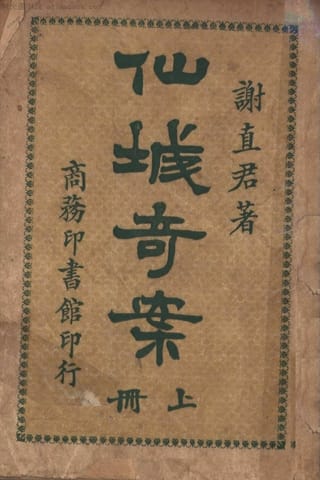 謝直君著
仙城奇案
上冊
商務印書館印行